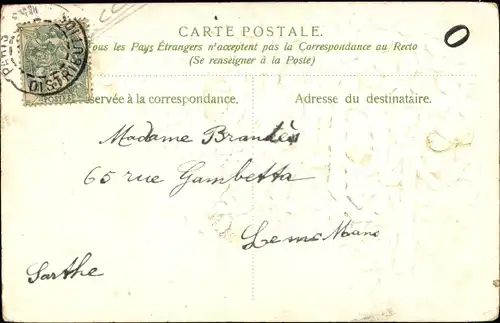 CARTE POSTALE.
ous les Pays Étrangers n'acceptent pas la Correspondance au Recto
(Se renseigner à la Poste)
servée à la correspondance.
Adresse du destinataire.
Madame Brandès
65 rue Gambetta
Le Mans
Sarthe
O
PARIS
DISTRIBUTION